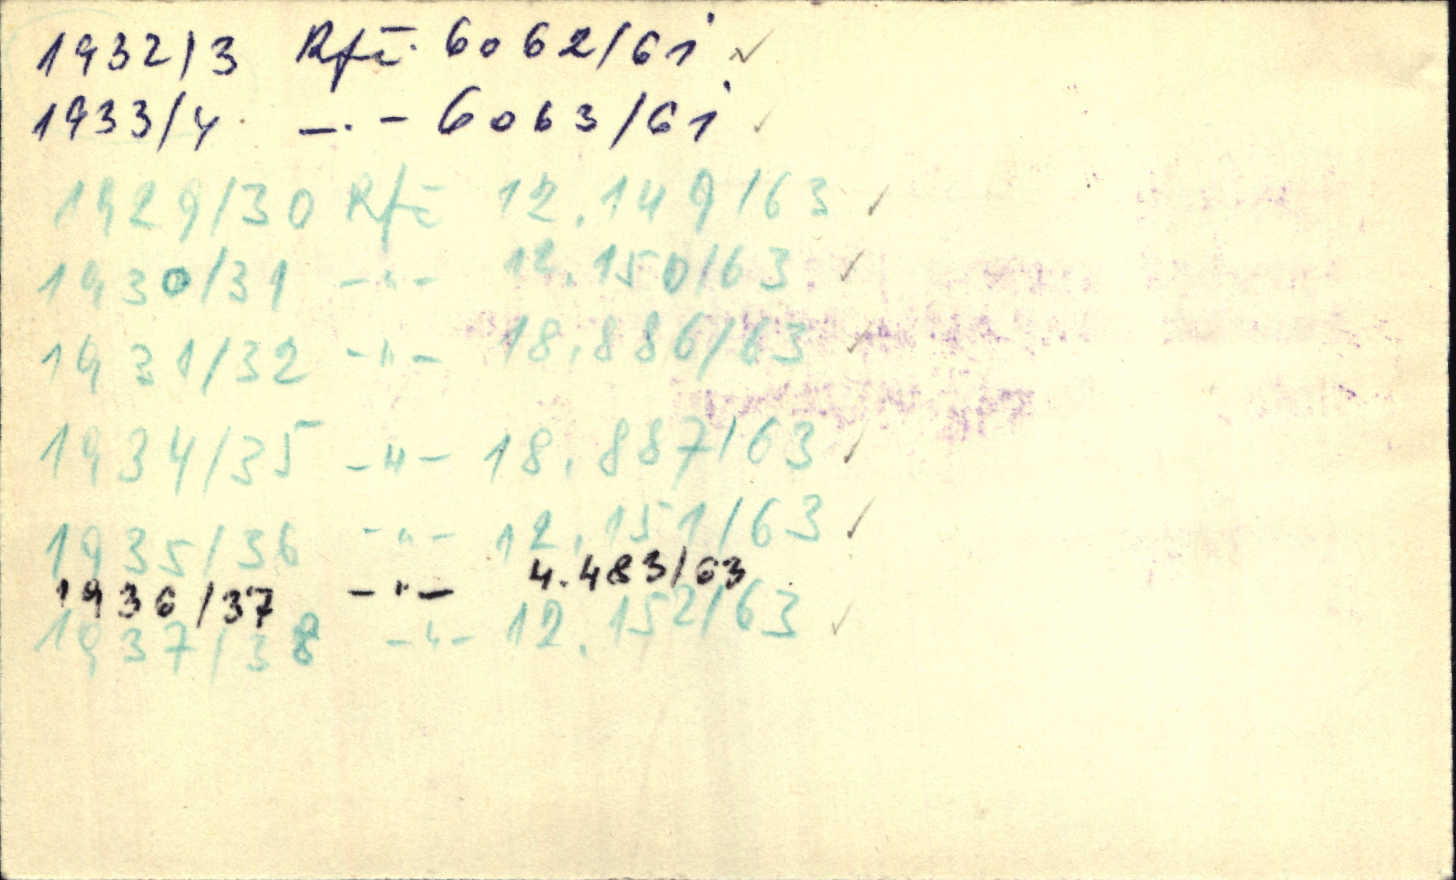 1932/3 Rfč. 6062/61 ✓
1933/4 -.- 6063/61 ✓
1929/30 Rfč 12.149/63 ✓
1930/31 -"- 12.150/63 ✓
1931/32 -"- 18.886/63 ✓
1934/35 -"- 18.887/63 ✓
1935/36 -"- 12.151/63 ✓
1936/37 -"- 4.483/63
1937/38 -"- 12.152/63 ✓